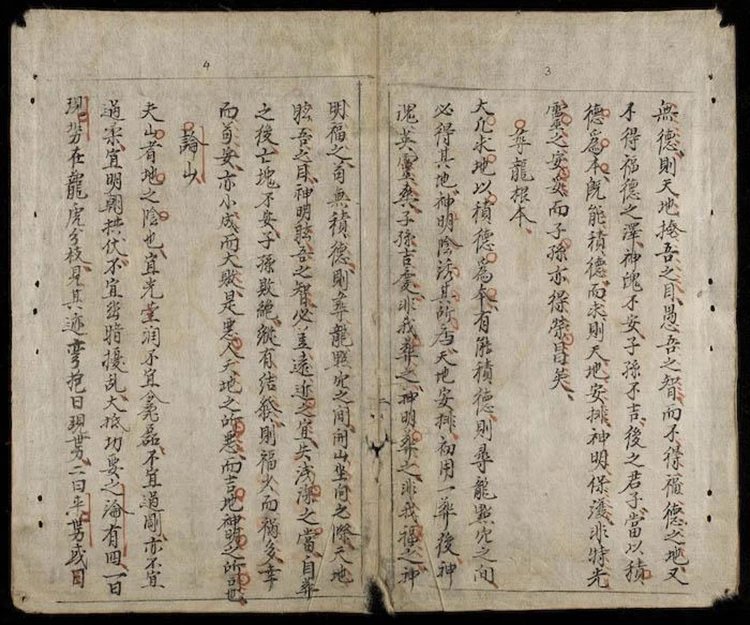 3
無德則天地掩吾之目愚吾之智而不得福德之地又
不得福德之澤神魄不安子孫不吉後之君子當以積
德爲本既能積德而求則天地安排神明保護非特先
靈之安妥而子孫亦得榮昌矣
尋龍根本
大凡求地以積德爲本有能積德則尋龍點穴之间
必得其地神明陰誘其所爲天地安排初用一葬後神
魂英靈矣子孫吉慶非我葬之神明葬之非我福之神
4
明福之有無積德則尋龍點穴之间開山坐向之際天地
眩吾之目神明昏吾之智必生遠近之宜失浅深之當自葬
之後亡塊不安子孫敗絕縱有結發則福少而禍多幸
而苟安亦小成而大敗是惡人天地之所惡而吉地神明之所
論山
夫山者地之陰也宜光莹润不宜
磊不宜過剛亦不宜
過柔宜明朗拱伏不宜
暗擾乱大抵功要之論有四一曰
現勢在龍虎分枝見其迹弯抱曰現勢二曰
勢或曰